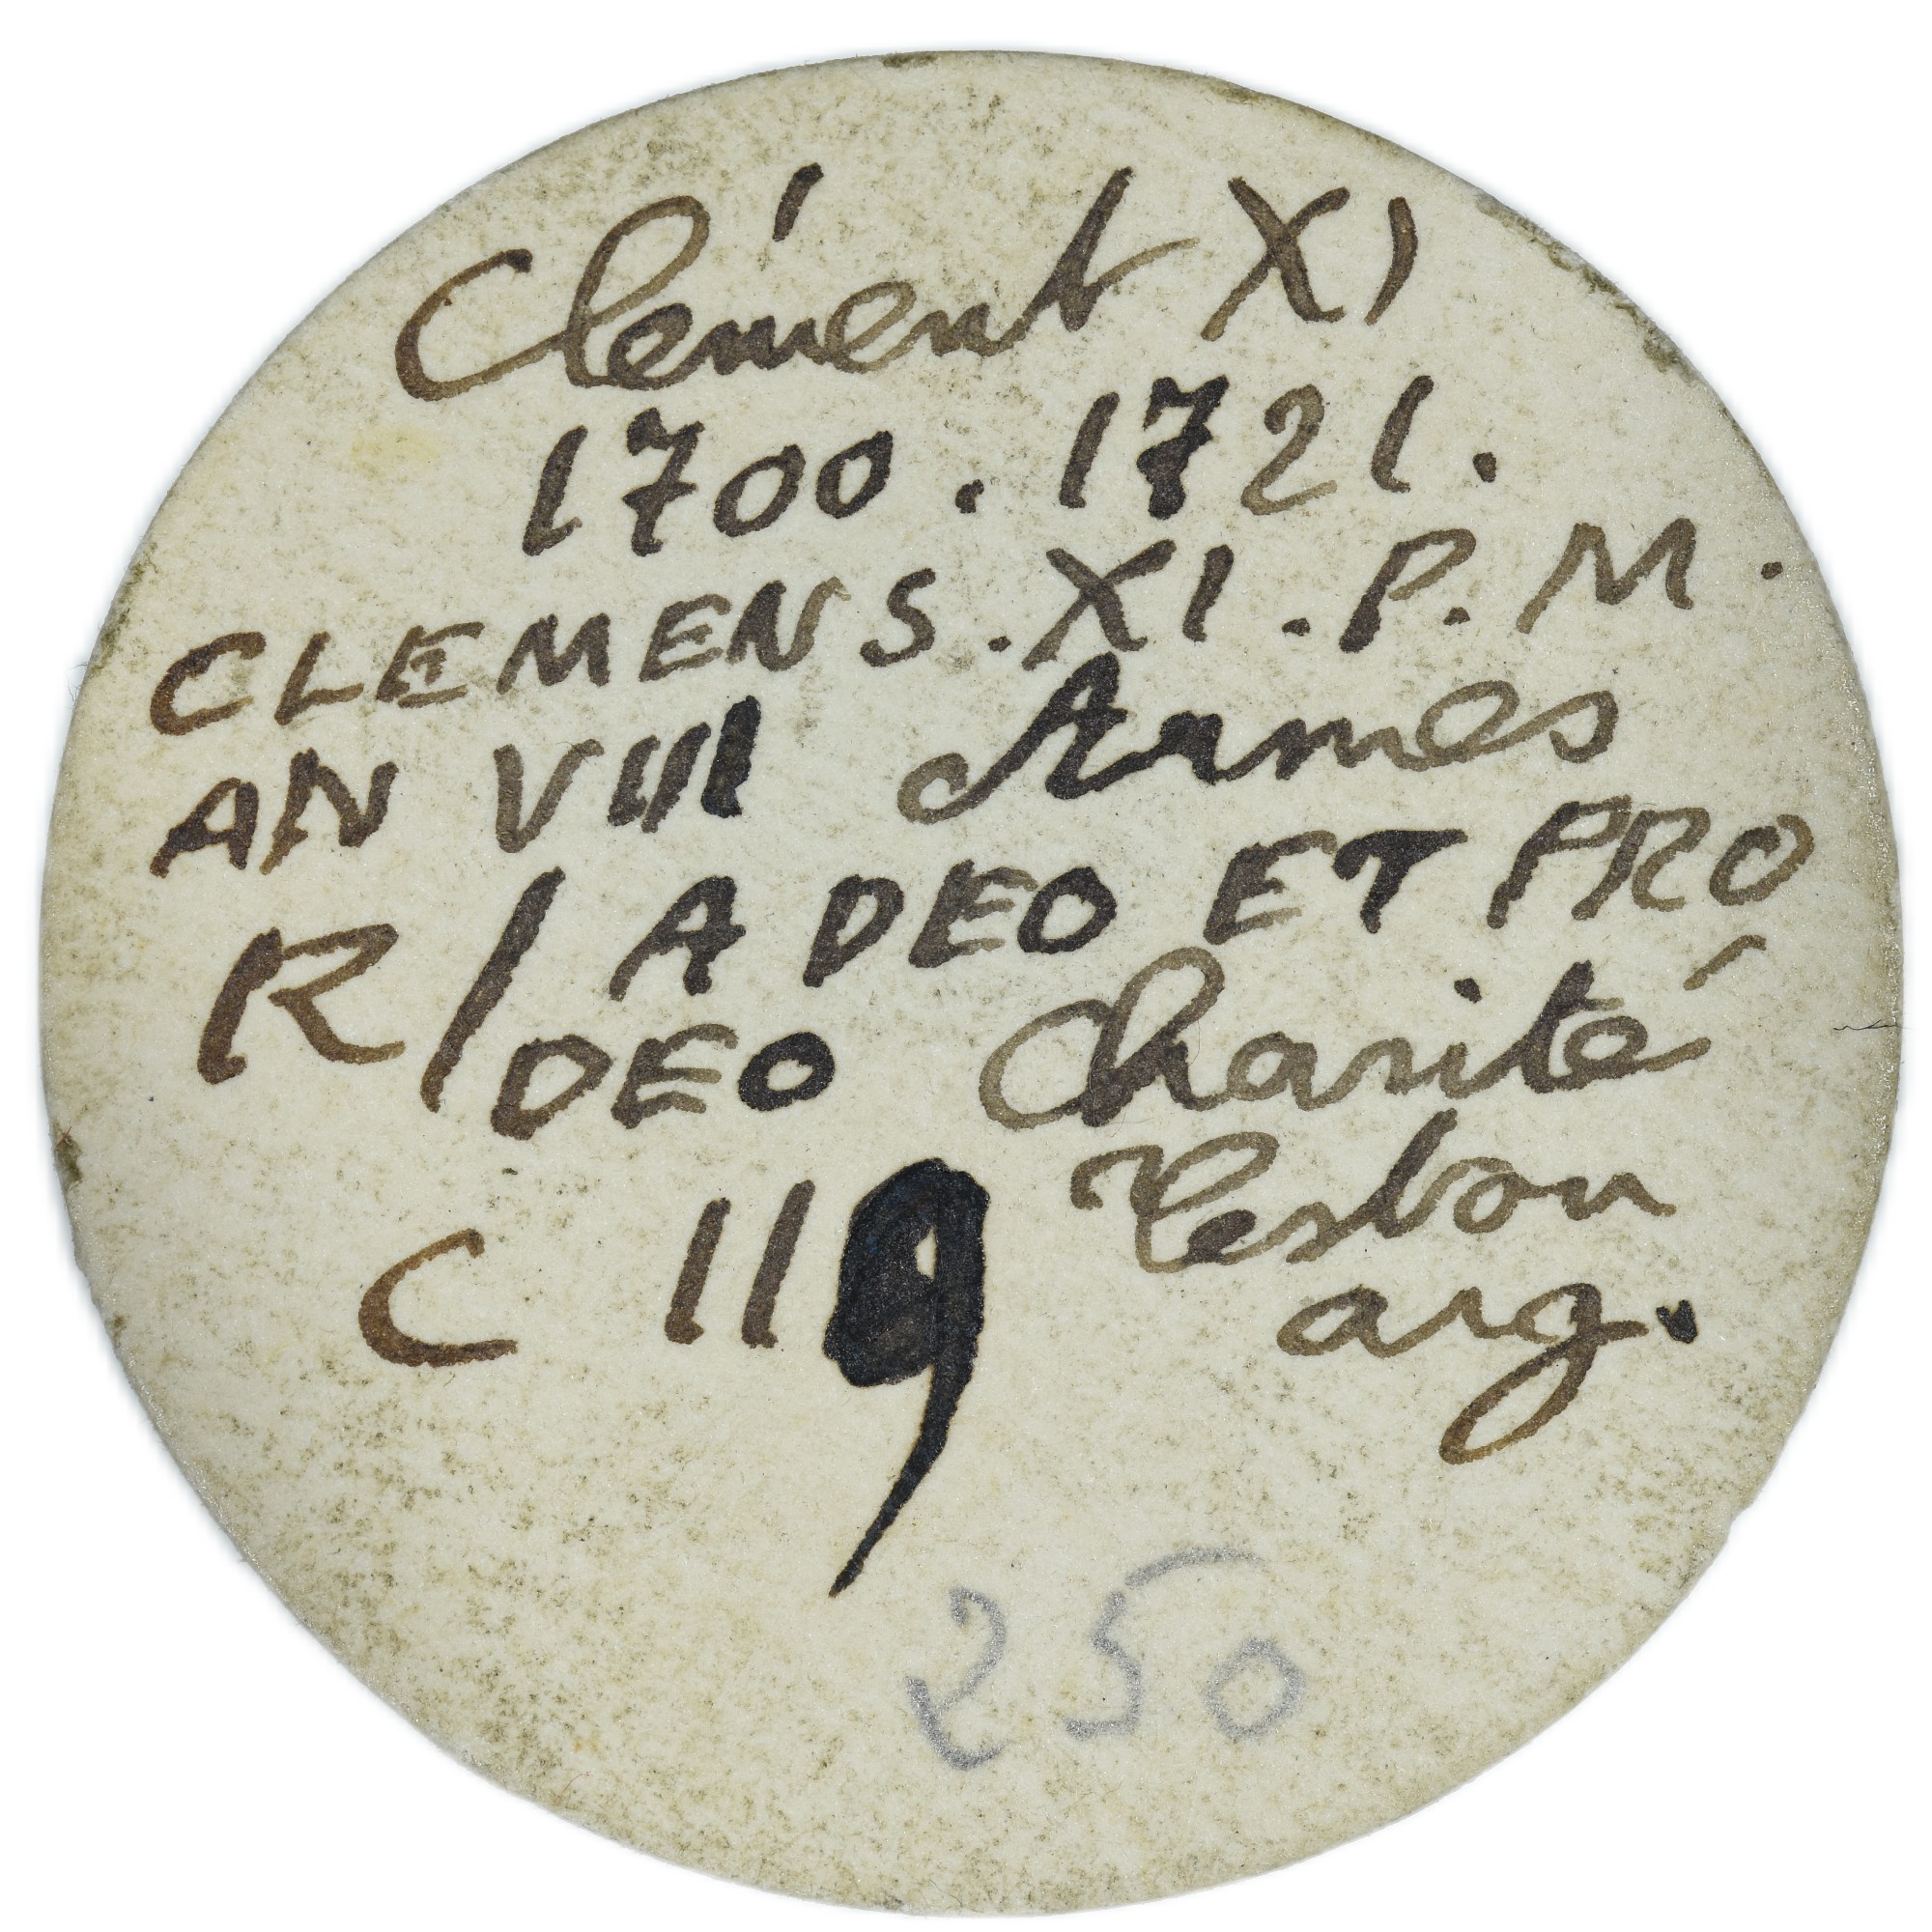 Clément XI
1700. 1721.
CLEMENS. XI. P. M.
AN VIII Armes
R/ A DEO ET PRO
DEO Charité
C 119 Teston
arg.
250